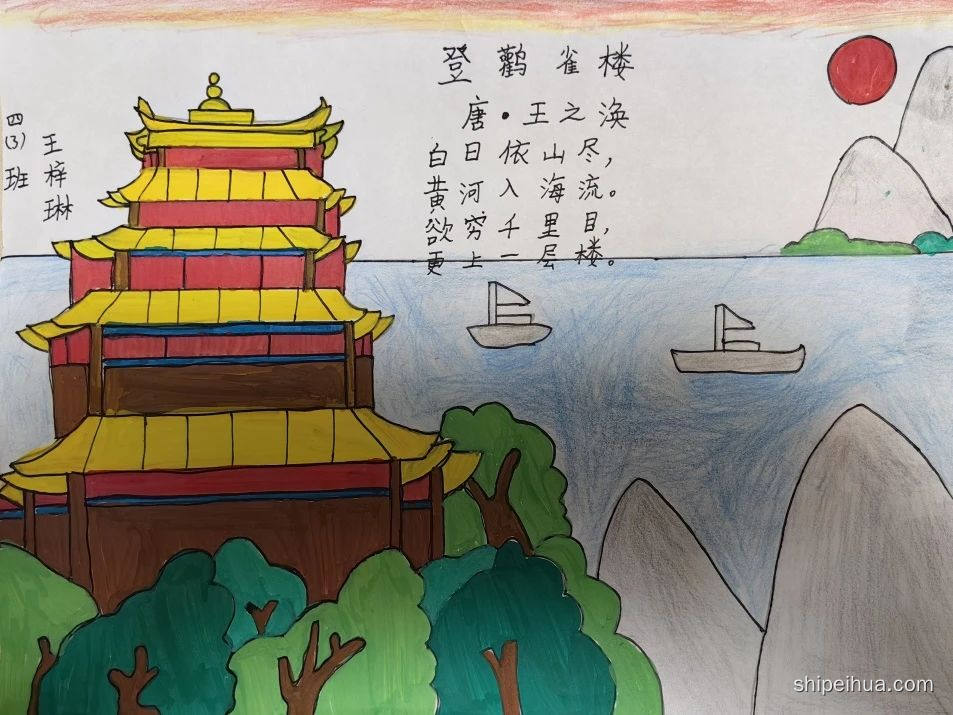 登鹳雀楼
唐·王之涣
白日依山尽，
黄河入海流。
欲穷千里目，
更上一层楼。
四(3)班
王梓琳
shipeihua.com